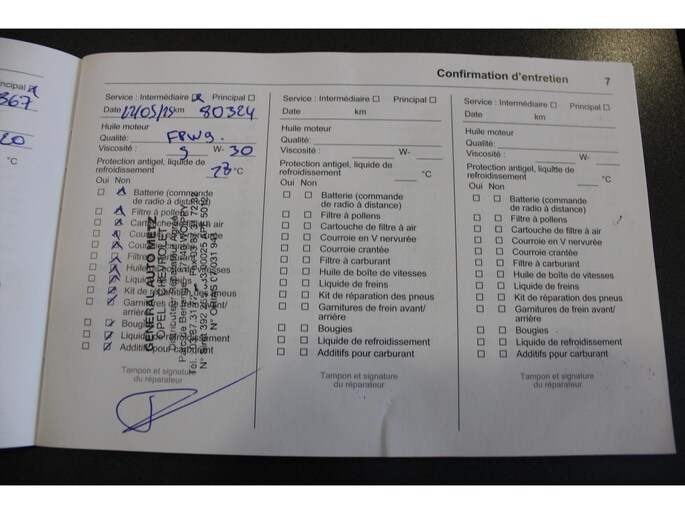 Confirmation d'entretien 7
ncipal
367
20
°C
Service : Intermédiaire Principal
Date 22/05/25 km 80324
Huile moteur
Qualité:
Viscosité : W- 30
Protection antigel, liquide de
refroidissement °C
Oui Non
Batterie (commande
de radio à distance)
Filtre à pollens
Cartouche de filtre à air
Courroie en V nervurée
Courroie crantée
Filtre à carburant
Huile de boîte de vitesses
Liquide de freins
Kit de réparation des pneus
Garnitures de frein avant/
arrière
Bougies
Liquide de refroidissement
Additifs pour carburant
GENERAL AUTO METZ
OPEL - CHEVROLET
Tampon et signature
du réparateur
Service : Intermédiaire Principal
Date km
Huile moteur
Qualité:
Viscosité : W-
Protection antigel, liquide de
refroidissement °C
Oui Non
Batterie (commande
de radio à distance)
Filtre à pollens
Cartouche de filtre à air
Courroie en V nervurée
Courroie crantée
Filtre à carburant
Huile de boîte de vitesses
Liquide de freins
Kit de réparation des pneus
Garnitures de frein avant/
arrière
Bougies
Liquide de refroidissement
Additifs pour carburant
Tampon et signature
du réparateur
Service : Intermédiaire Principal
Date km
Huile moteur
Qualité:
Viscosité : W-
Protection antigel, liquide de
refroidissement °C
Oui Non
Batterie (commande
de radio à distance)
Filtre à pollens
Cartouche de filtre à air
Courroie en V nervurée
Courroie crantée
Filtre à carburant
Huile de boîte de vitesses
Liquide de freins
Kit de réparation des pneus
Garnitures de frein avant/
arrière
Bougies
Liquide de refroidissement
Additifs pour carburant
Tampon et signature
du réparateur